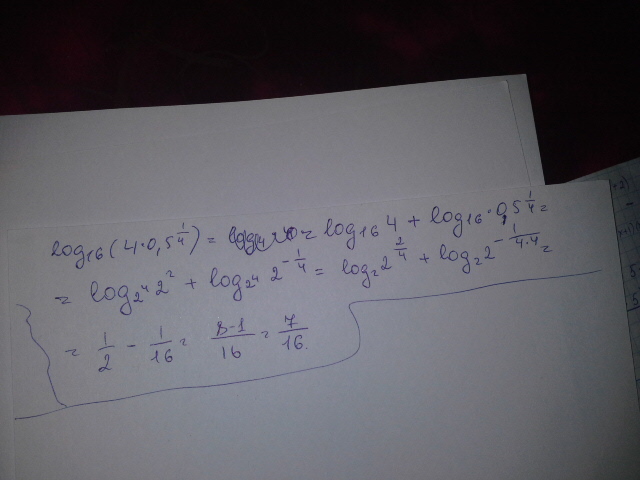 log₁₆(4·0,5^{1/4}) = = log₁₆ 4 + log₁₆ 0,5^{1/4} =
= log_{2⁴} 2² + log_{2⁴} 2^{-1/4} = log₂ 2^{2/4} + log₂ 2^{-1/(4·4)} =
= 1/2 - 1/16 = (8-1)/16 = 7/16.